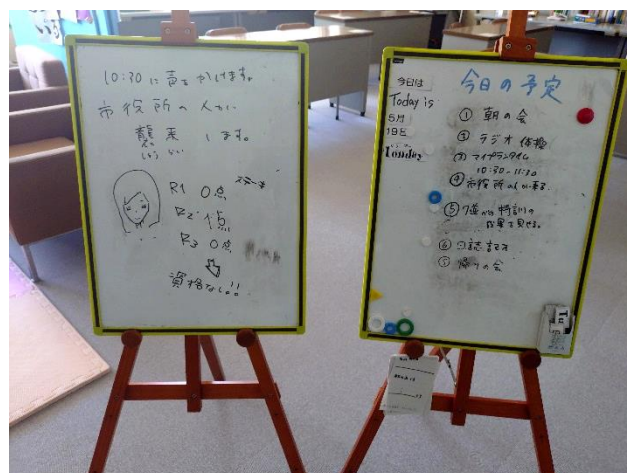 10:30に声をかけます。
市役所の人が
襲来します。
しゅう らい
R1 0点
R2 1点
R3 0点
⇩
資格なし!!
今日は
Today is
5月
19日
Monday
今日の予定
① 朝の会
② ラジオ体操
③ マイプランタイム
10:30-11:30
④ 市役所の人が来る
⑤ 特訓の
成果を見せる。
⑥ 日誌記入
⑦ 帰りの会